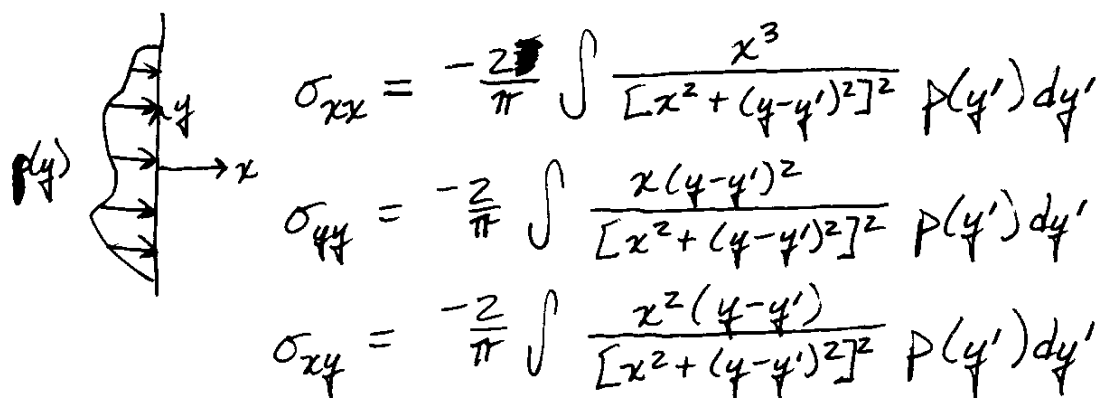 σxx = -2/π ∫ x³/[x² + (y-y')²]² p(y') dy'
y
p(y)
x
σyy = -2/π ∫ x(y-y')²/[x² + (y-y')²]² p(y') dy'
σxy = -2/π ∫ x²(y-y')/[x² + (y-y')²]² p(y') dy'